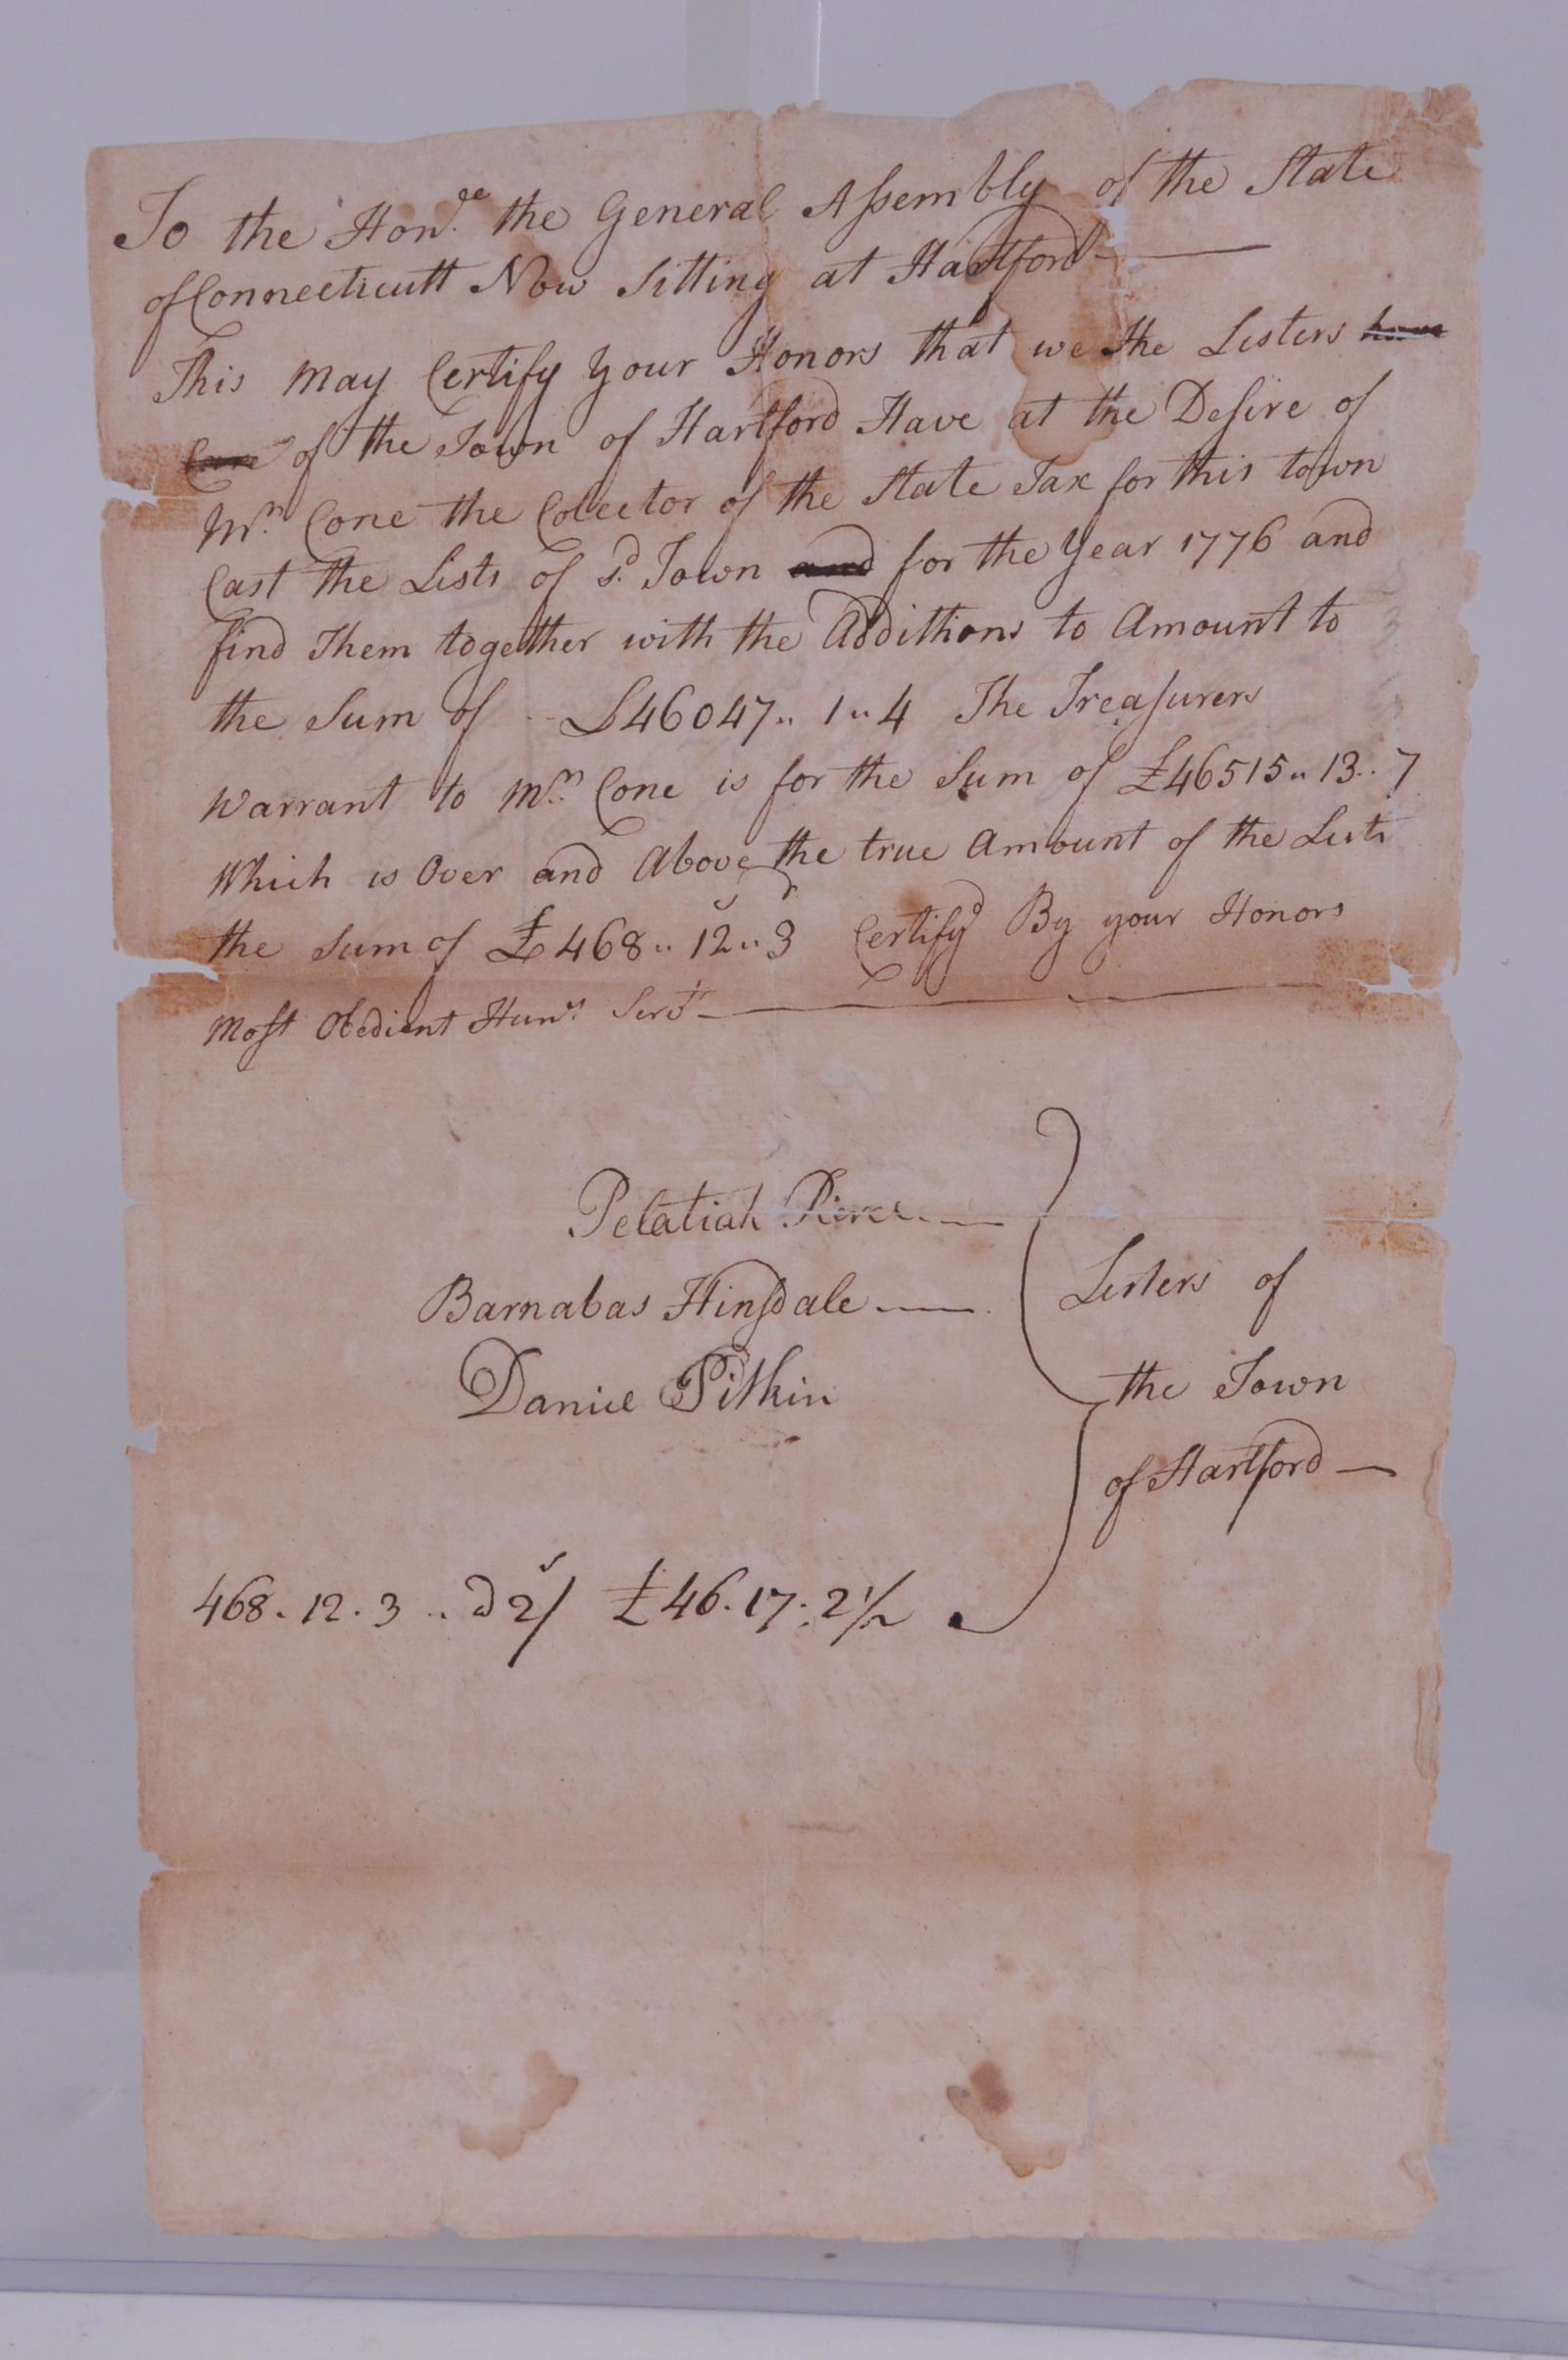 To the Honᵈˡᵉ the General Assembly of the State
of Connecticutt Now Sitting at Hartford
This may Certify your Honors that we the Listers have
Cone of the Town of Hartford Have at the Desire of
Mʳ. Cone the Colector of the State Tax for this town
Cast the Lists of sᵈ. Town and for the Year 1776 and
find Them together with the Addithons to Amount to
the Sum of £46047 .. 1 .. 4 The Treasurers
Warrant to Mʳ. Cone is for the Sum of £46515 .. 13 .. 7
Which is Over and Above the true Amount of the Lists
the Sum of £468 .. 12ˢ .. 3ᵈ Certifyᵈ By your Honors
Most Obedient Humˢ. Servᵗˢ
Pelatiah Pierce
Barnabas Hinsdale
Daniel Pitkin
Listers of
the Town
of Hartford
468 . 12 . 3 .. d 2ˢ/ £46 . 17 : 2 1/2